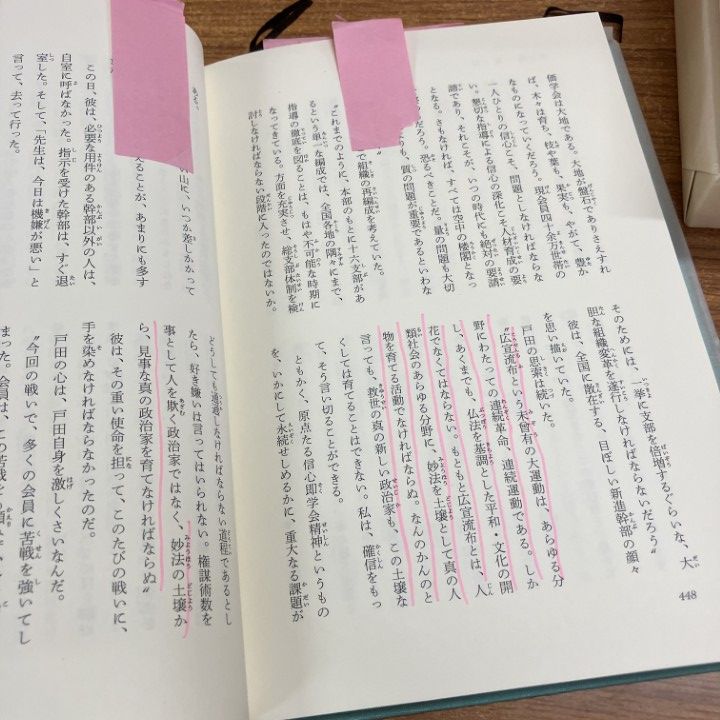 価学会は大地である。大地が盤石でありさえすれ
ば、木々は育ち、枝や葉も、果実も、やがて、豊か
なものになっていくだろう。現会員四十余万世帯の
一人ひとりの信心こそ、問題としなければならな
い。懇切な指導による信心の深化こそ人材育成の要
諦であり、それこそが、いつの時代にも絶対の要請
となる。さもなければ、すべては空中の楼閣となっ
だろう。恐るべきことだ。量の問題も大切
りも、質の問題が重要であるといわな
で組織の再編成を考えていた。
〝これまでのように、本部のもとに十六支部があ
るという単一な編成では、全国各地の隅々にまで、
指導の徹底を図ることは、もはや不可能な時期に
なってきている。方面を充実させ、総支部体制を検
討しなければならない段階に入ったのではないか。
そのためには、一挙に支部を倍増するぐらいな、大
胆な組織変革を遂行しなければならないだろう〟
彼は、全国に散在する、目ぼしい新進幹部の顔々
を思い描いていた。
戸田の思索は続いた。
〝広宣流布という未曾有の大運動は、あらゆる分
野にわたっての連続革命、連続運動である。しか
し、あくまでも、仏法を基調とした平和・文化の開
花でなくてはならない。もともと広宣流布とは、人
類社会のあらゆる分野に、妙法を土壌として真の人
物を育てる活動でなければならぬ。なんのかんのと
言っても、救世の真の新しい政治家も、この土壌な
くしては育てることはできない。私は、確信をもっ
て、そう言い切ることができる。
ともかく、原点たる信心即学会精神というもの
を、いかにして永続せしめるかに、重大なる課題が
448
ある。
い山に、いつか差しかかって
えることが、あまりにも多す
この日、彼は、必要な用件のある幹部以外の人は、
自室に呼ばなかった。指示を受けた幹部は、すぐ退
室した。そして、「先生は、今日は機嫌が悪い」と
言って、去って行った。
どうしても通過しなければならない道程であるとし
たら、好き嫌いは言ってはいられない。権謀術数を
事として人を欺く政治家ではなく、妙法の土壌か
ら、見事な真の政治家を育てなければならぬ〟
彼は、その重い使命を担って、このたびの戦いに、
手を染めなければならなかったのだ。
戸田の心は、戸田自身を激しくさいなんだ。
〝今回の戦いで、多くの会員に苦戦を強いてし
まった。会員は、この苦戦を